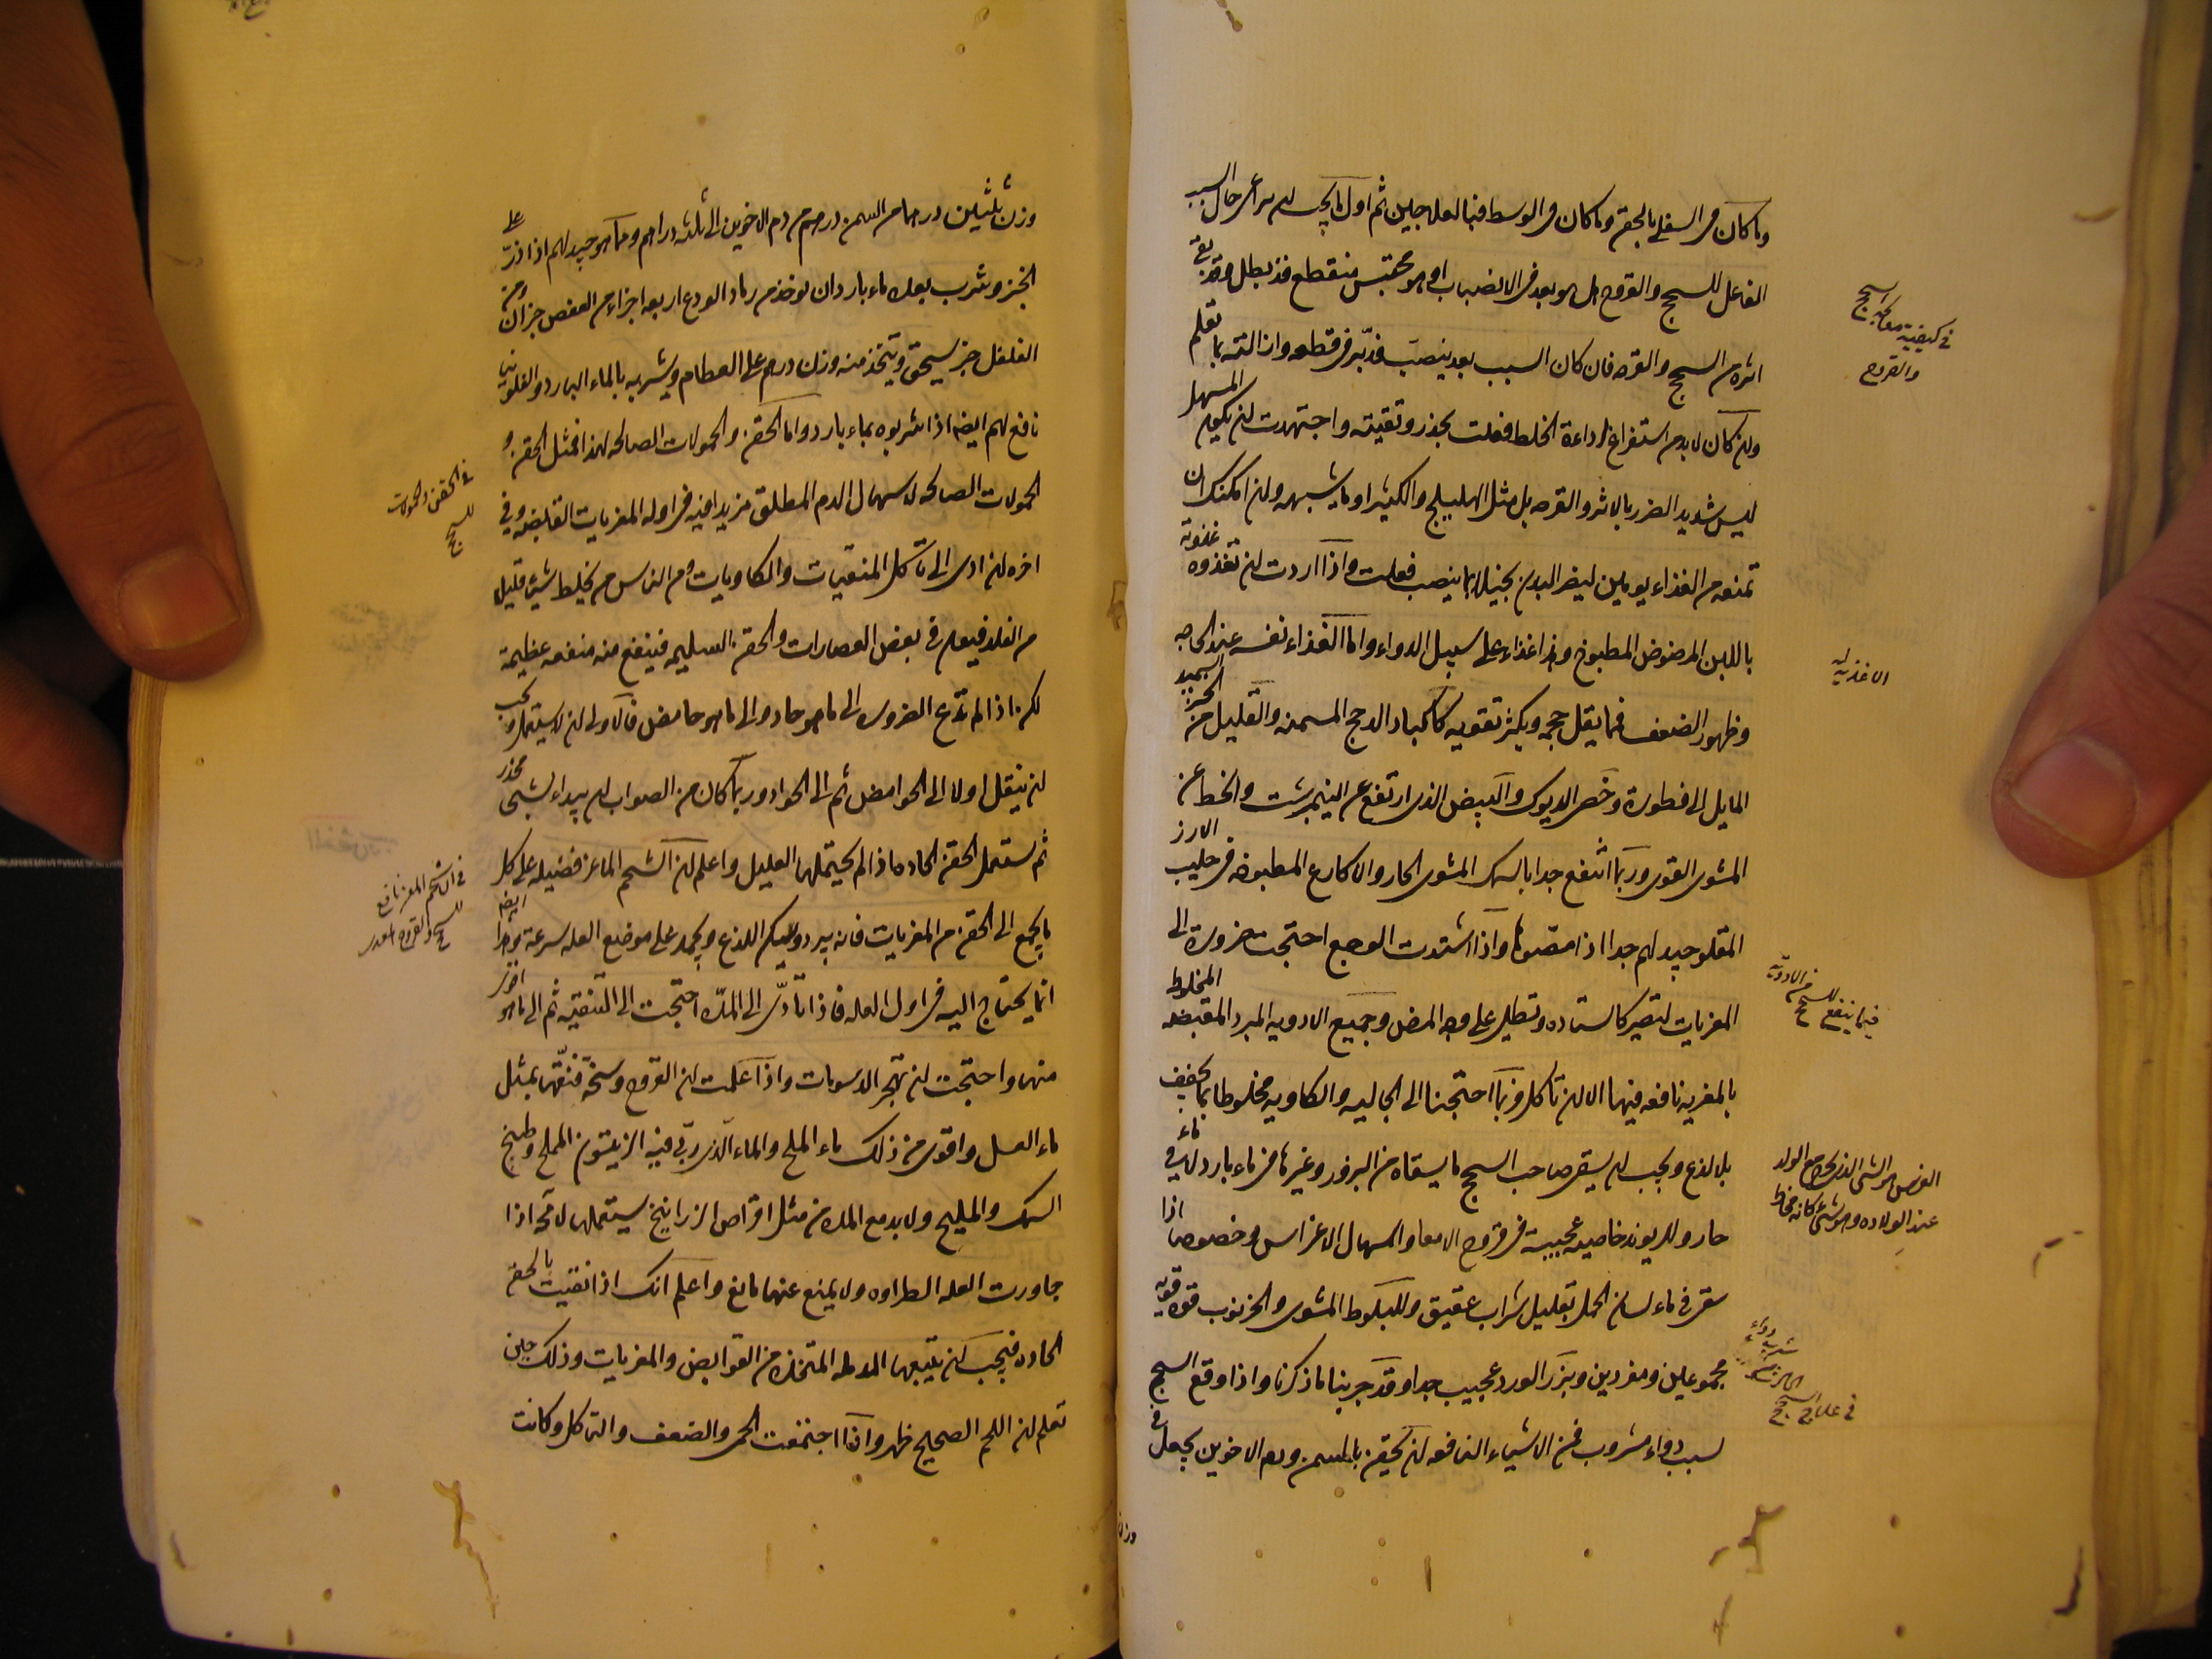 وما كان فى السفلى بالحقن وما كان فى الوسط فبالعلاجين ثم اول ما يجب ان يراعى حال السبب
الفاعل للسحج والقروح هل هو بعد فى الانصباب او هو محتبس منقطع قد بطل وقد بقى
اثره من السحج والقرحه فان كان السبب بعد ينصب فدبر فى قطعه وازالته بما تعلم
وان كان لا بد من استفراغ لرداءة الخلط فعلت بحذر وتقيته واجتهدت ان يكون المسهل
ليس شديد الضرر بالاثر والقرحه بل مثل الهليلج والكثيرا وما يشبهه وان امكنك ان
تمنعه من الغذاء يومين ليخلى البدن عما ينصب فعلت واذا اردت ان تغذوه غذوته
باللبن المرضوض المطبوخ وهذا غذاء على سبيل الدواء واما الغذاء نفسه عند الحاجه
وظهور الضعف فما يقل حجمه ويكثر تقويه كاكباد الدجج المسمنه والقليل من الخبز السميد
المايل الى فطورة وخصى الديوك والبيض الذى ارتفع عن النيمبرشت وانحط عن
المشوى القوى وربما انتفع جدا بالسمك المشوى الحار والاكارع المطبوخه فى حليب الارز
المقلو جيد لهم جدا اذا مصوها واذا اشتدت الوجع احتجت ضرورة الى
المغريات لتصير كالستاره وتطلى على وجه المرض وجميع الادويه المبرد المقبضه المخلوط
بالمغريه نافعه فيها الا ان تاكل وربما احتجنا الى الجاليه والكاويه مخلوطا بما يجفف
بلا لذع ويجب ان يسقى صاحب السحج ما يسقاه من البزور وغيرها فى ماء بارد لا فى ماء
حار وللريوند خاصيه عجيبة فى قروح الامعا والاسهال الاغراسى وخصوصا اذا
سقى فى ماء لسان الحمل بقليل شراب عتيق وللبلوط المشوى والخرنوب قوه قويه
مجموعين ومفردين وبزر الورد عجيب جدا وقد جربنا ما ذكرنا واذا وقع السحج
لسبب دواء مشروب فمن الاشياء النافعه ان يحقن بالسمن ودم الاخوين يجعل فى
فى كيفية معالجه السحج
والقروح
الاغذيه
فيما ينفع للسحج من الادويه
الغرس هو الشى الذى يخرج مع الولد
عند الولاده وهو شئ كانه مخاط
فى علاج السحج
وزن
وزن ثلثين درهما من السمن درهم من دم الاخوين الى ثلثه دراهم ومما هو جيد لهم اذا ذر على
الخبز وشرب بعده ماء بارد ان يوخذ من رماد الودع اربعه اجزاء من العفص جزان ومن
الفلفل جز يسحق ويتخذ منه وزن درهم على الطعام ويشربه بالماء البارد والفلونيا
نافع لهم ايضا اذا شربوه بماء بارد واما الحقن والحمولات الصالحه لهذا فمثل الحقن و
الحمولات الصالحه لاسهال الدم المطلق مزيدا فيه فى اوله المغريات القابضه وفى
اخره ان ادى الى تاكل المنقيات والكاويات ومن الناس من يخلط شيئا قليلا
من الفلد فيعلو فى بعض العصارات والحقن السليمه فينفع منه منفعه عظيمة
لكن اذا لم تدع الضروره الى ما هو حاد والى ما هو حامض فالاولى ان لا يستعمل ويجب
ان ينتقل اولا الى الحوامض ثم الى الحواد وربما كان من الصواب ان يبداء بشئ مخدر
ثم يستعمل الحقن الحاده اذا لم يحتملها العليل واعلم ان الشحم الماعز فضيله على كل
ما يجمع الى الحقن من المغريات فانه يبرد ويسكن اللذع ويجمد على موضع العله بسرعة وهذا ايضا
انما يحتاج اليه فى اول العله فاذا تادى الى المده احتجت الى التنقيه ثم الى ما هو اقوى
منها واحتجت ان تهجر الدسومات واذا علمت ان القروح وسخة فنقها بمثل
ماء العسل واقوى من ذلك ماء الملح والماء الذى ربى فيه الزيتون المملح وطبيخ
السمك والمليح ولا بد مع المده من مثل اقراص الزرانيخ يستعملها لا محه اذا
جاورت العله الطراوه ولا يمنع عنها مانع واعلم انك اذا نقيت بالحقن
الحاده فيجب ان يتبعها المدمله المتخذه من القوابض والمغريات وذلك حين
تعلم ان اللحم الصحيح ظهر واذا اجتمعت الحمى والضعف والتاكل وكانت
فى الحقن والحمولات
للسحج
فى ان شحم المعز نافع
للسحج والقروح